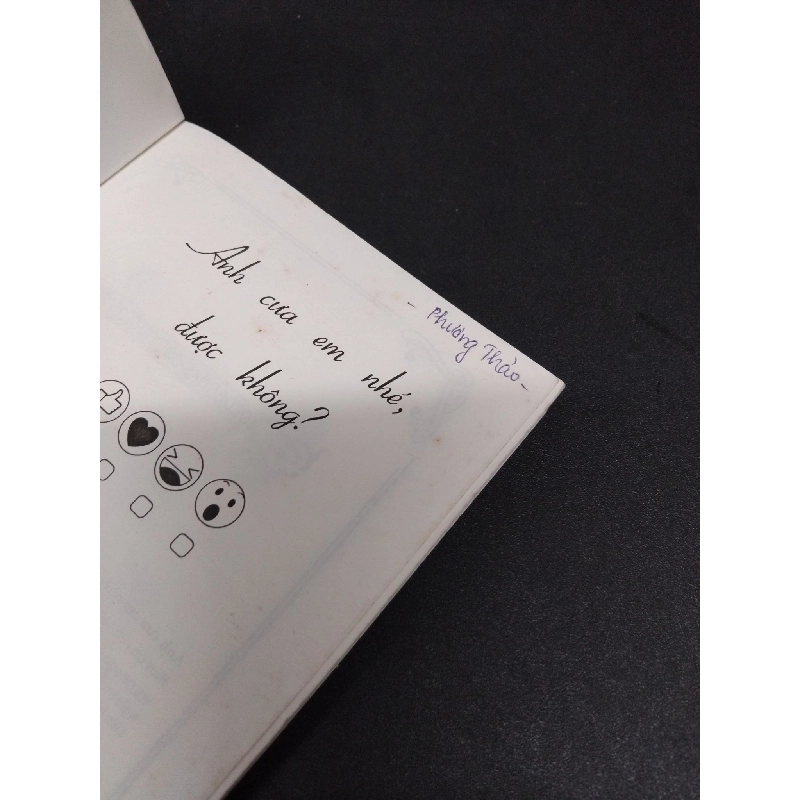 - Phương Thảo -
Anh cưa em nhé,
được không?